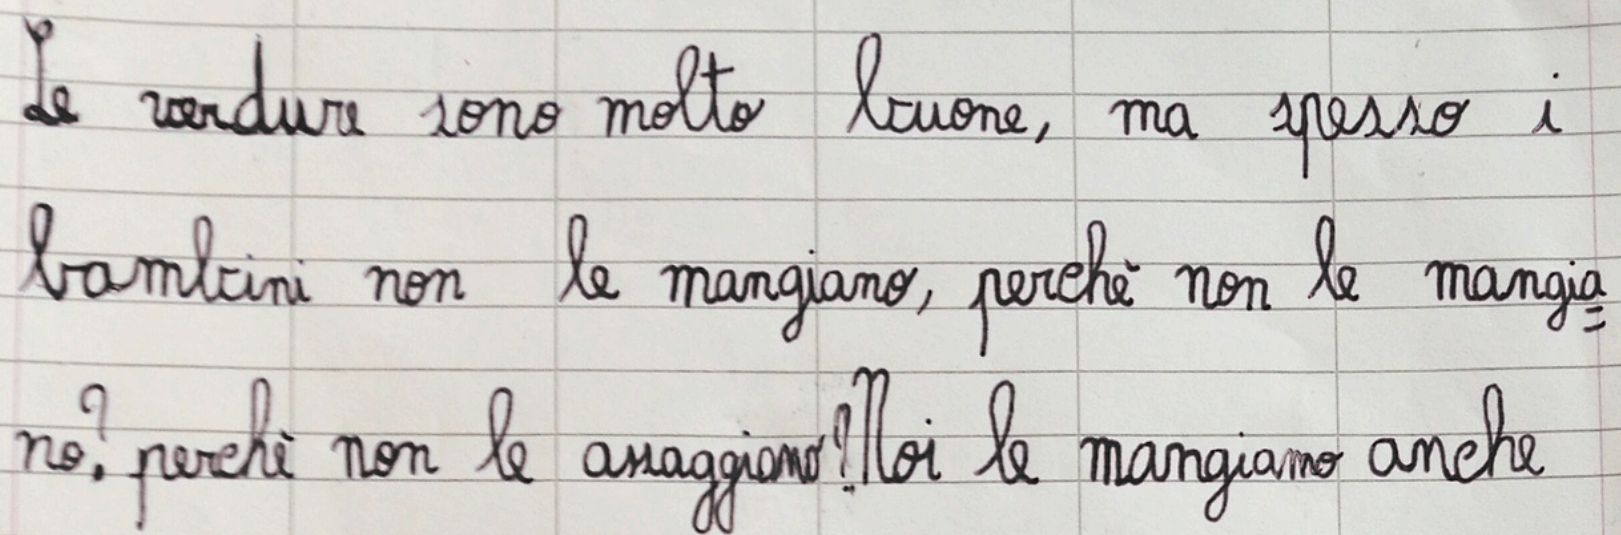 Le verdure sono molto buone, ma spesso i
bambini non le mangiano, perchè non le mangia=
no? perchè non le assaggiano? Noi le mangiamo anche